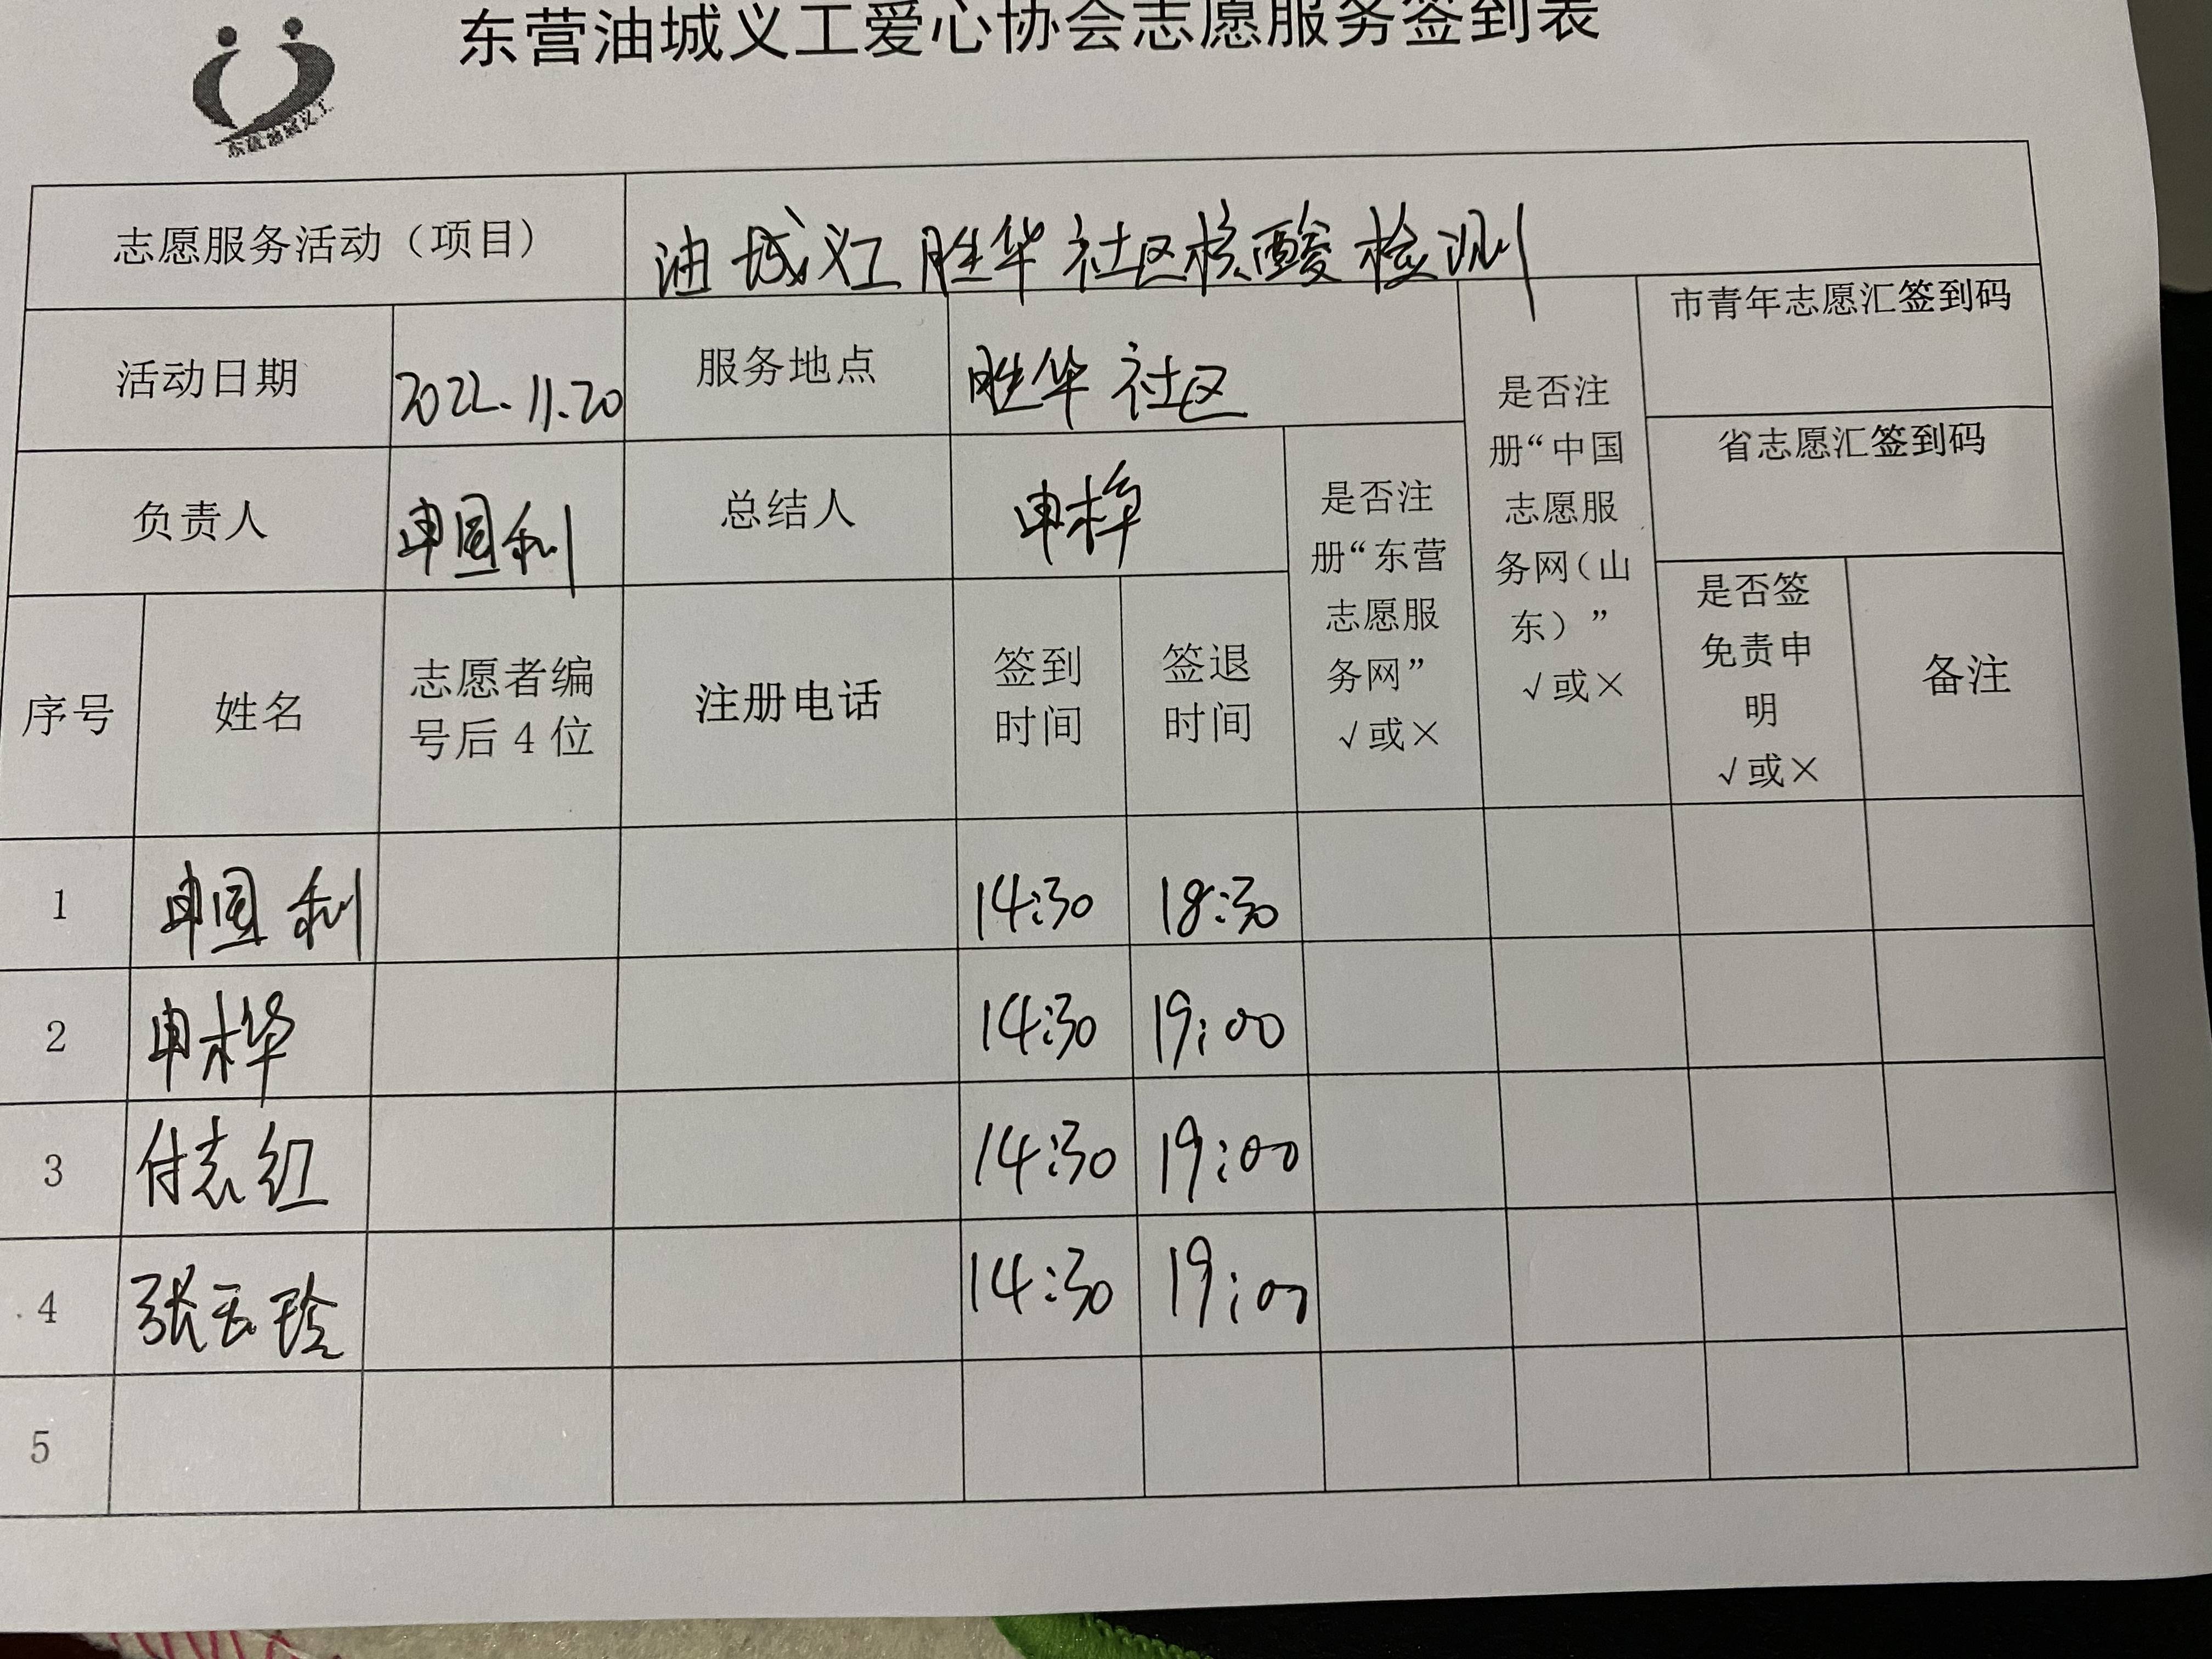 东营油城义工爱心协会志愿服务签到表
东营油城义工
志愿服务活动（项目） 油城义工胜华社区核酸检测
活动日期 2022.11.20 服务地点 胜华社区
市青年志愿汇签到码
省志愿汇签到码
负责人 申国利 总结人 申桦
是否注
册“东营
志愿服
务网”
√或×
是否注
册“中国
志愿服
务网（山
东）”
√或×
序号 姓名
志愿者编
号后4位
注册电话
签到
时间
签退
时间
是否签
免责申
明
√或×
备注
1 申国利 14:30 18:30
2 申桦 14:30 19:00
3 付志红 14:30 19:00
4 张玉玲 14:30 19:00
5